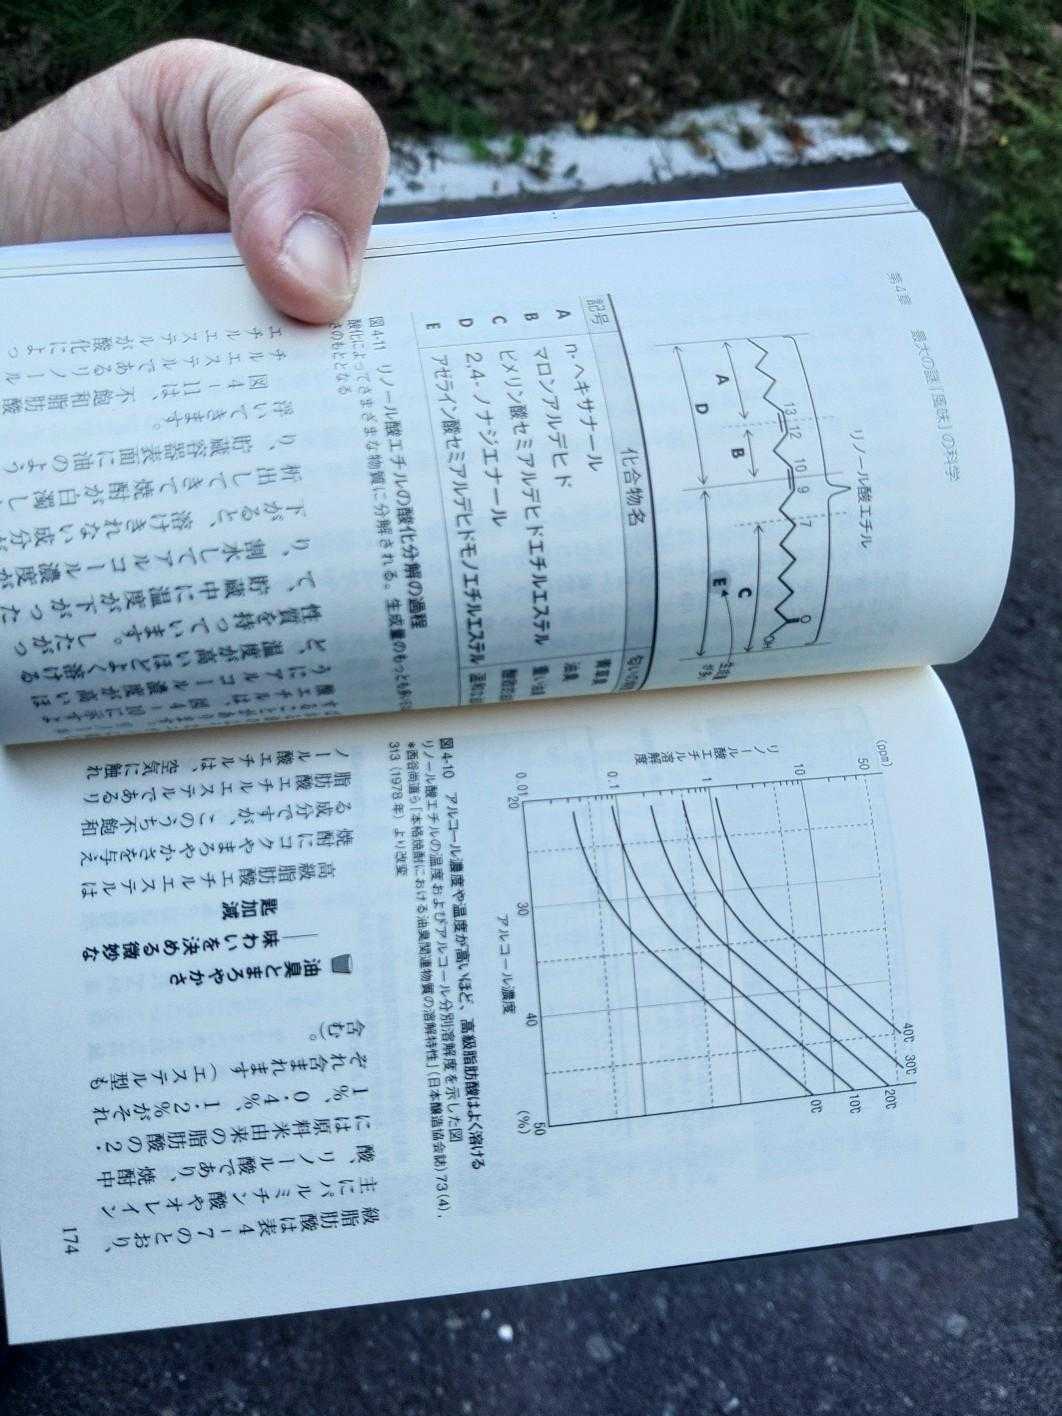 (ppm)
50
10
1
0.1
0.01
リノール酸エチル溶解度
20
30
40
50
(%)
アルコール濃度
40℃
30℃
20℃
10℃
0℃
図4-10 アルコール濃度や温度が高いほど、高級脂肪酸はよく溶ける
リノール酸エチルの温度およびアルコール分別溶解度を示した図
*西谷尚道ら「本格焼酎における油臭関連物質の溶解特性」(日本醸造協会誌)73(4),
313(1978年)より改変
級脂肪酸は表4-7のとおり、
主にパルミチン酸やオレイン
酸、リノール酸であり、焼酎中
には原料米由来の脂肪酸の2.
1%、0.4%、1.2%がそれ
ぞれ含まれます(エステル型も
含む)。
油臭とまろやかさ
――味わいを決める微妙な
匙加減
高級脂肪酸エチルエステルは
焼酎にコクやまろやかさを与え
る成分ですが、このうち不飽和
脂肪酸エチルエステルであるリ
ノール酸エチルは、空気に触れ
174
第4章 最大の謎「風味」の科学
リノール酸エチル
13
12
10
9
7
O
OH
A
B
C
D
E
記号 化合物名
A n-ヘキサナール
B マロンアルデヒド
C ピメリン酸セミアルデヒドエチルエステル
D 2,4-ノナジエナール
E アゼライン酸セミアルデヒドモノエチルエステル
図4-11 リノール酸エチルの酸化分解の過程
酸化によってさまざまな物質に分解される。生成量のもっとも多い
さのもととなる
酸エチルは、図4-10に示すよ
うにアルコール濃度が高いほ
ど、温度が高いほどよく溶ける
性質を持っています。したがっ
て、貯蔵中に温度が下がった
り、割水してアルコール濃度が
下がると、溶けきれない成分が
析出してきて焼酎が白濁し、
り、貯蔵容器表面に油のよう
浮いてきます。
図4-11は、不飽和脂肪酸
チルエステルであるリノール
エチルエステルが酸化によっ